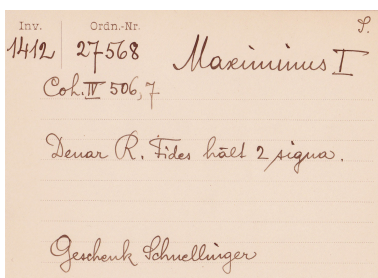 Inv. Ordn.-Nr. S.
1412 27568 Maximinus I
Coh. IV 506,7
Denar R. Fides hält 2 signa.
Geschenk Schnellinger